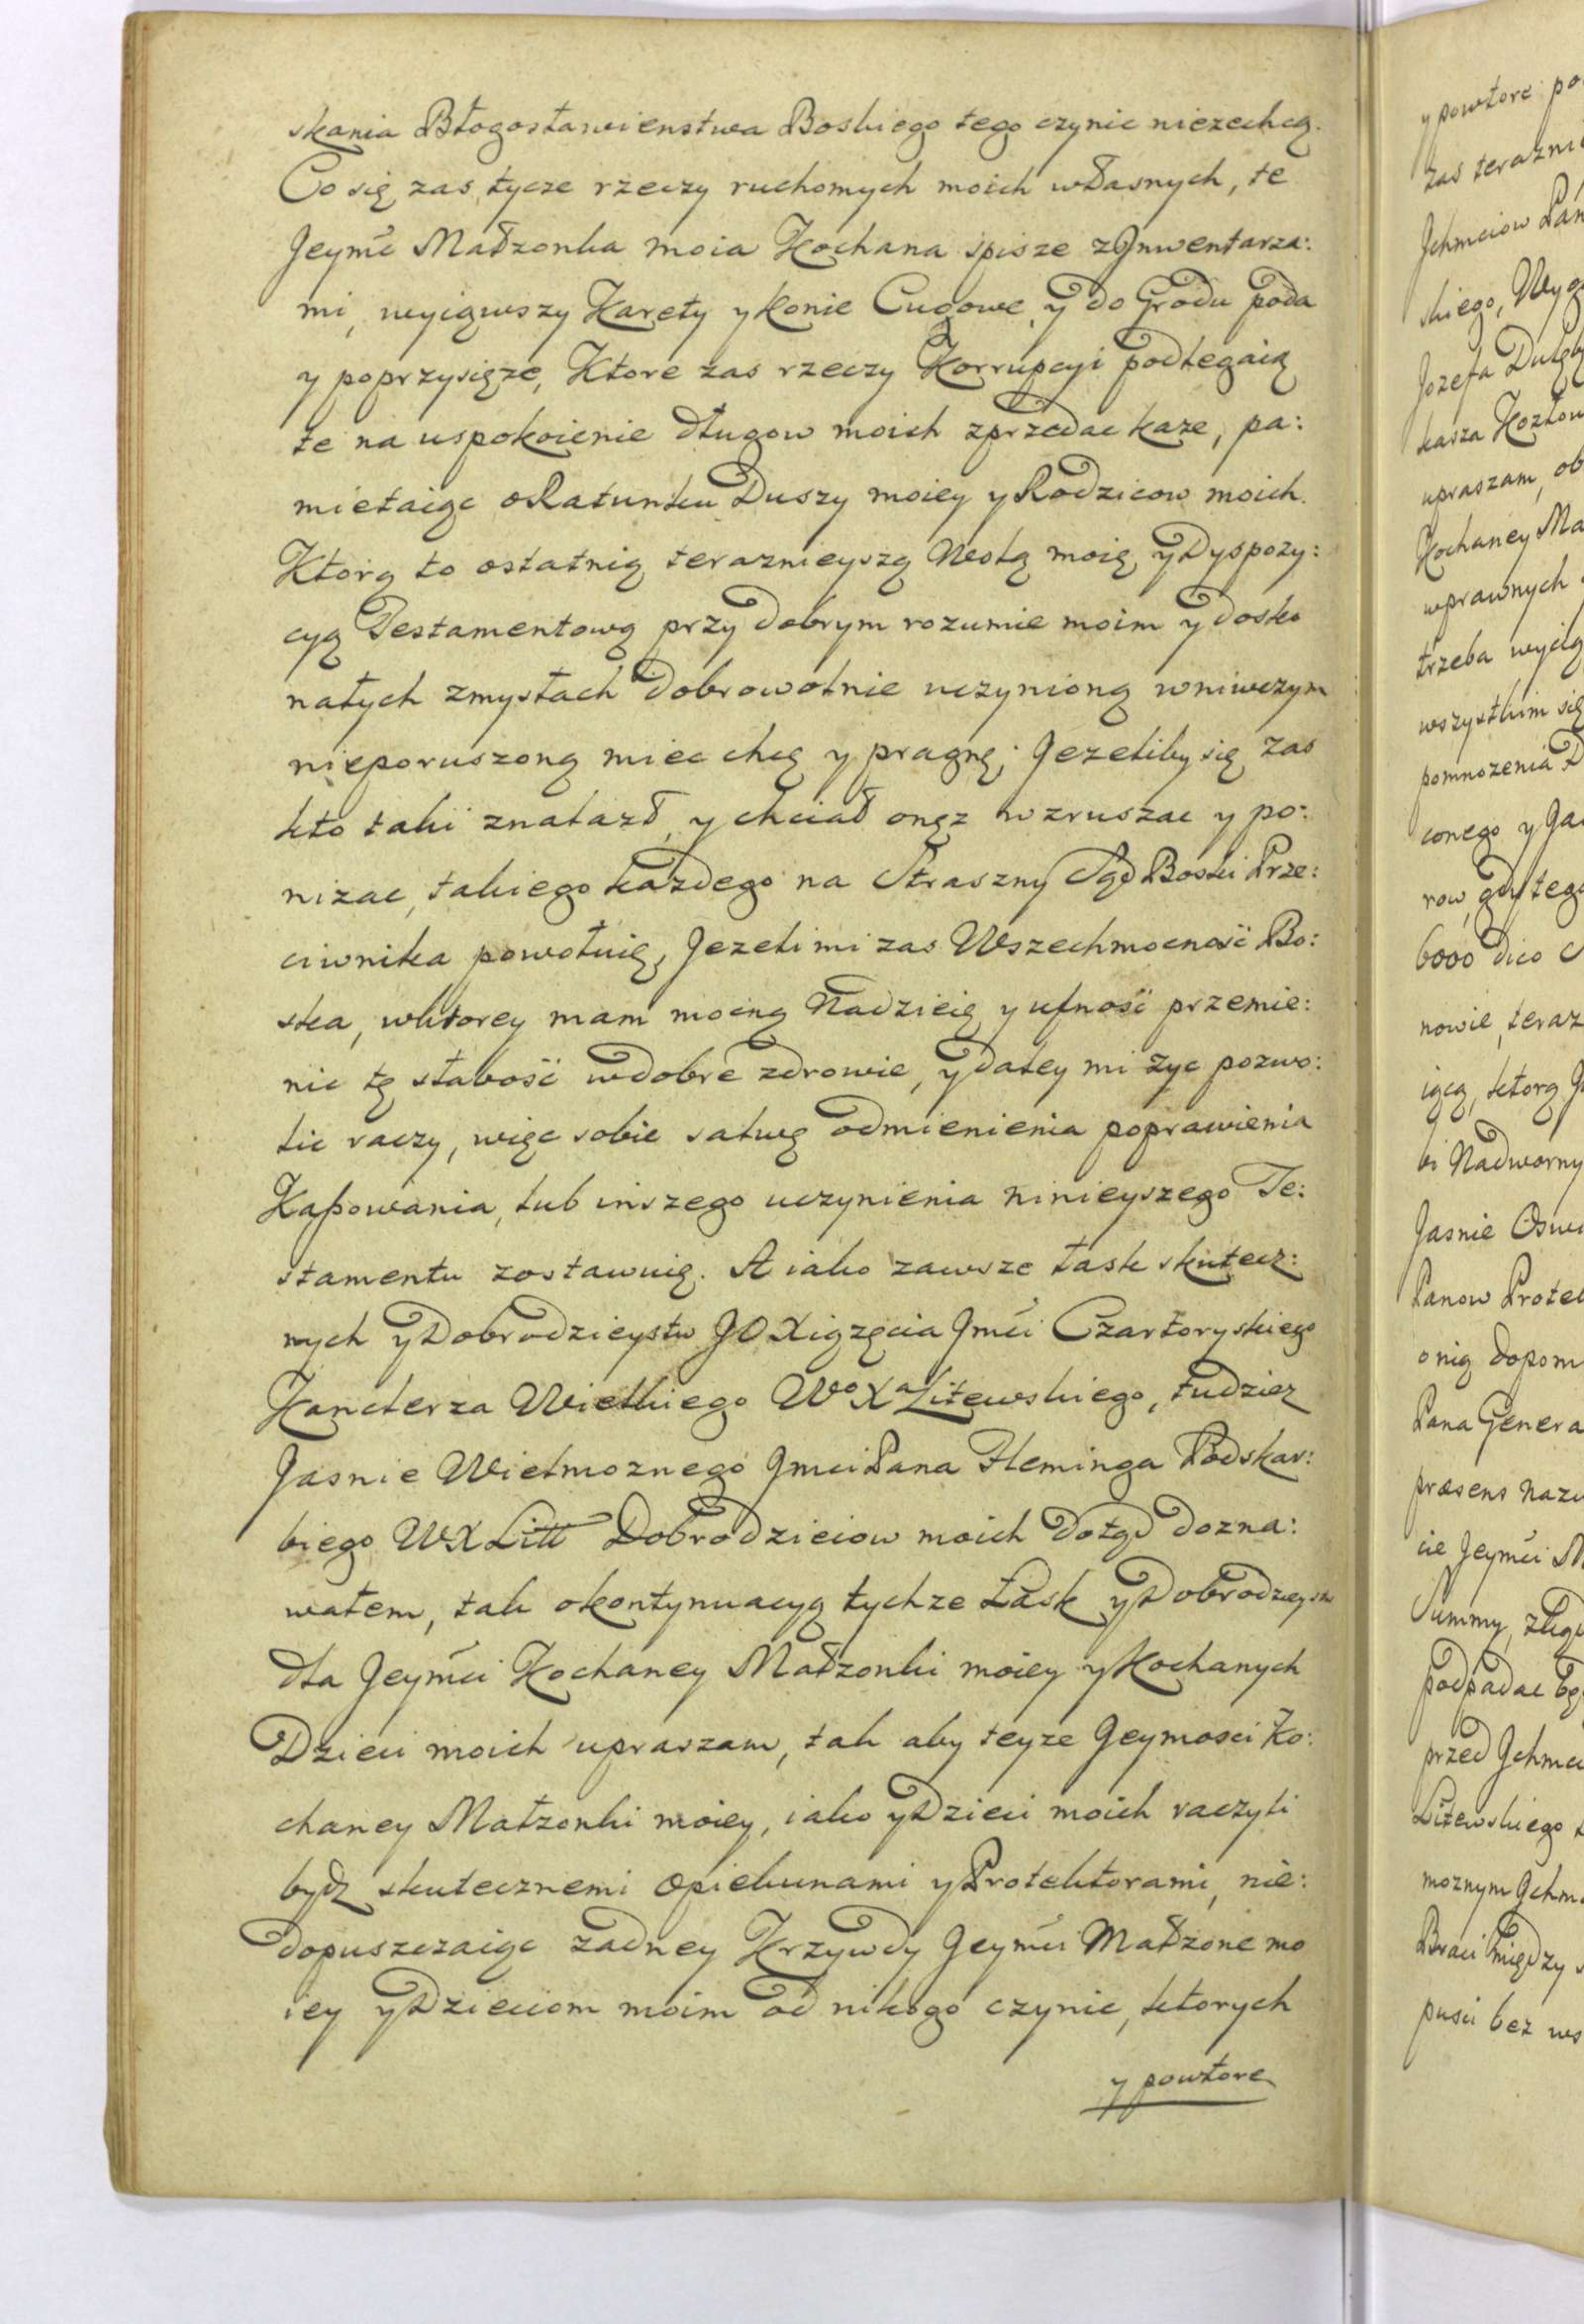 skania Błogosławienstwa Boskiego tego czynic niezechcą.
Co się zas tycze rzeczy ruchomych moich własnych, te
Jeymć Małzonka moia Kochana spisze z Jnwentarza:
mi, wyiąwszy Karety y Konie Cugowe, y do Grodu poda
y poprzysięze, Ktore zas rzeczy Korrupcyi podlegaią
te na uspokoienie długow moich zprzedac kaze, pa:
mietaiąc o Ratunku Duszy moiey y Rodzicow moich.
Ktorą to ostatnią teraznieyszą Wolą moię y Dyspozy:
cyą Testamentową przy dobrym rozumie moim y dosko
nałych zmysłach dobrowolnie uczynioną wniwczym
nieporuszoną miec chcę y pragnę; Jezeliby się zas
kto taki znalazł, y chciał onęz wzruszac y po:
nizac, takiego kazdego na Straszny Sąd Boski Prze:
ciwnika powołuię, Jezeli mi zas Wszechmocność Bo:
ska, wktorey mam mocną Nadzieię y ufność przemie:
nic tę słabość w dobre zdrowie, y daley mi zyc pozwo:
lic raczy, więc sobie salwę odmienienia poprawienia
Kaßowania, lub inszego uczynienia ninieyszego Te:
stamentu zostawuię. A iako zawsze łask skutecz:
nych y Dobrodzieystw JO Xiązęcia Jmći Czartoryskiego
Kanclerza Wielkiego Wo Xa Litewskiego, tudziez
Jasnie Wielmoznego Jmci Pana Fleminga Podskar:
biego WXLitt Dobrodzieiow moich dotąd dozna:
wałem, tak o kontynuacyą tychze Łask y Dobrodzieystw
dla Jeymći Kochaney Małzonki moiey y Kochanych
Dzieci moich upraszam, tak aby teyze Jeymosci Ko:
chaney Małzonki moiey, iako y Dzieci moich raczyli
bydz skutecznemi Opiekunami y Protektorami, nie:
dopuszczaiąc zadney Krzywdy Jeymći Małzonce mo
iey y Dzieciom moim od nikogo czynic, ktorych
y powtore
y powtore po
zas terazni
Jchmciow Pan
skiego, Wyg
Jozefa Dulęb
kasza Kozłow
upraszam, ob
Kochaney Ma
wprawnych
trzeba wycią
wszystkim się
pomnozenia D
conego y Ja
row, gdy tego
6000 dico
nowie, teraz
iącą, ktorą J
bi Nadworny
Jasnie Oswi
Panow Protek
o nią dopom
Pana Genera
præsens nazw
cie Jeymći M
Summy, zkąd
podpadac bę
przed Jchmci
Litewskiego
moznym Jchm
Braci między
pusci bez ws